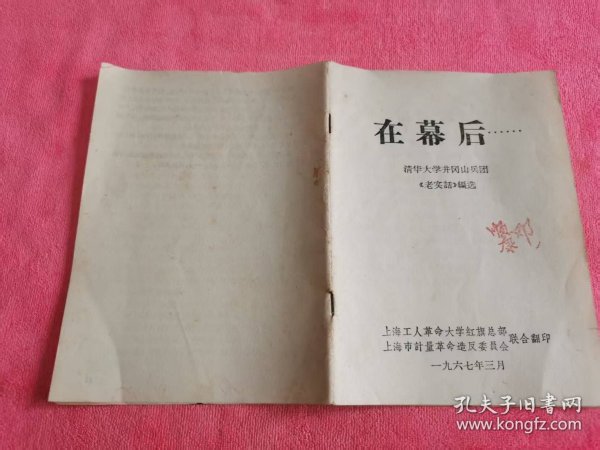 在幕后……
清华大学井冈山兵团
《老实話》編选
上海工人革命大学红旗总部
上海市計量革命造反委員会
联合翻印
一九六七年三月
孔夫子旧书网
www.kongfz.com